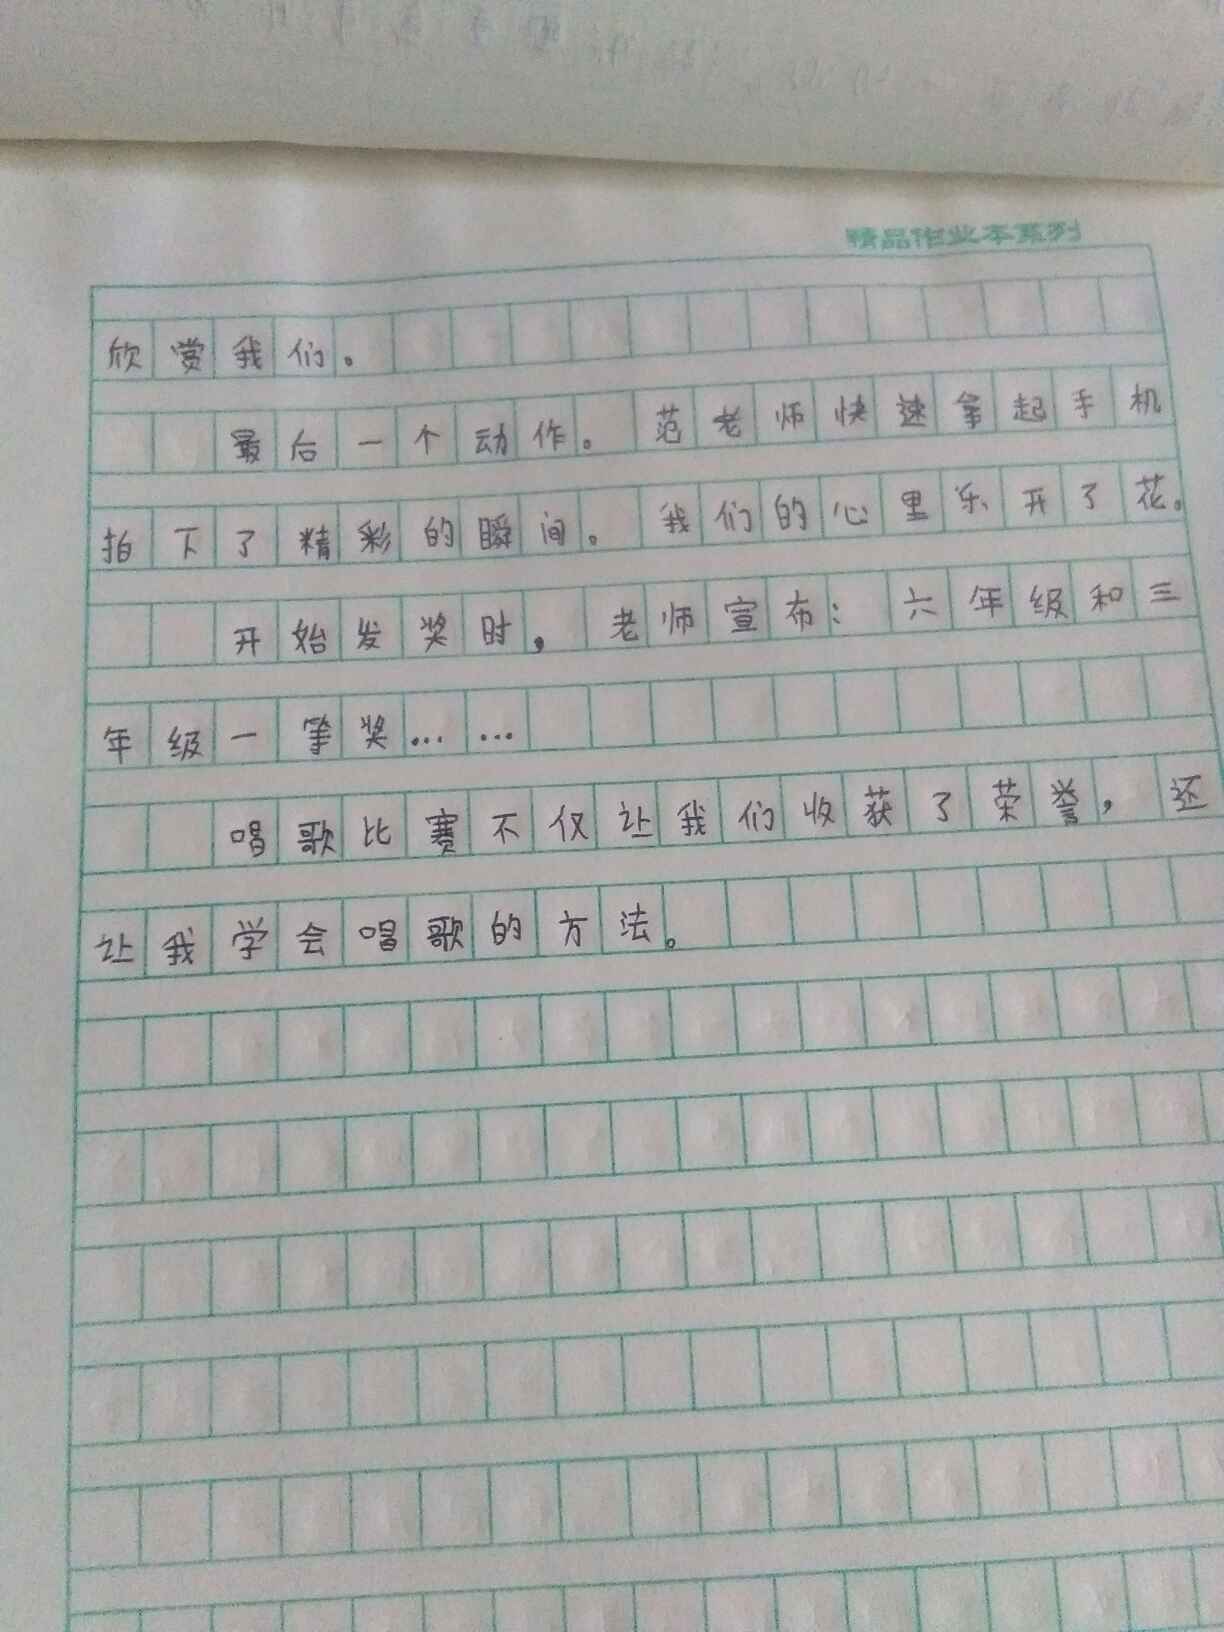 精品作业本系列
欣赏我们。
最后一个动作。范老师快速拿起手机
拍下了精彩的瞬间。我们的心里乐开了花。
开始发奖时，老师宣布：六年级和三
年级一等奖……
唱歌比赛不仅让我们收获了荣誉，还
让我学会唱歌的方法。